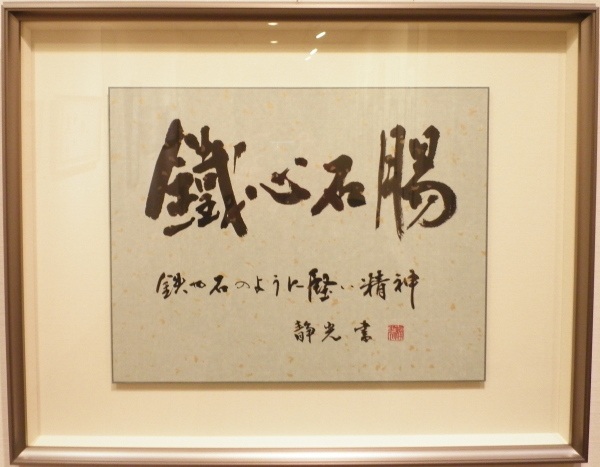 鐵心石腸
鉄や石のように堅い精神
静光書